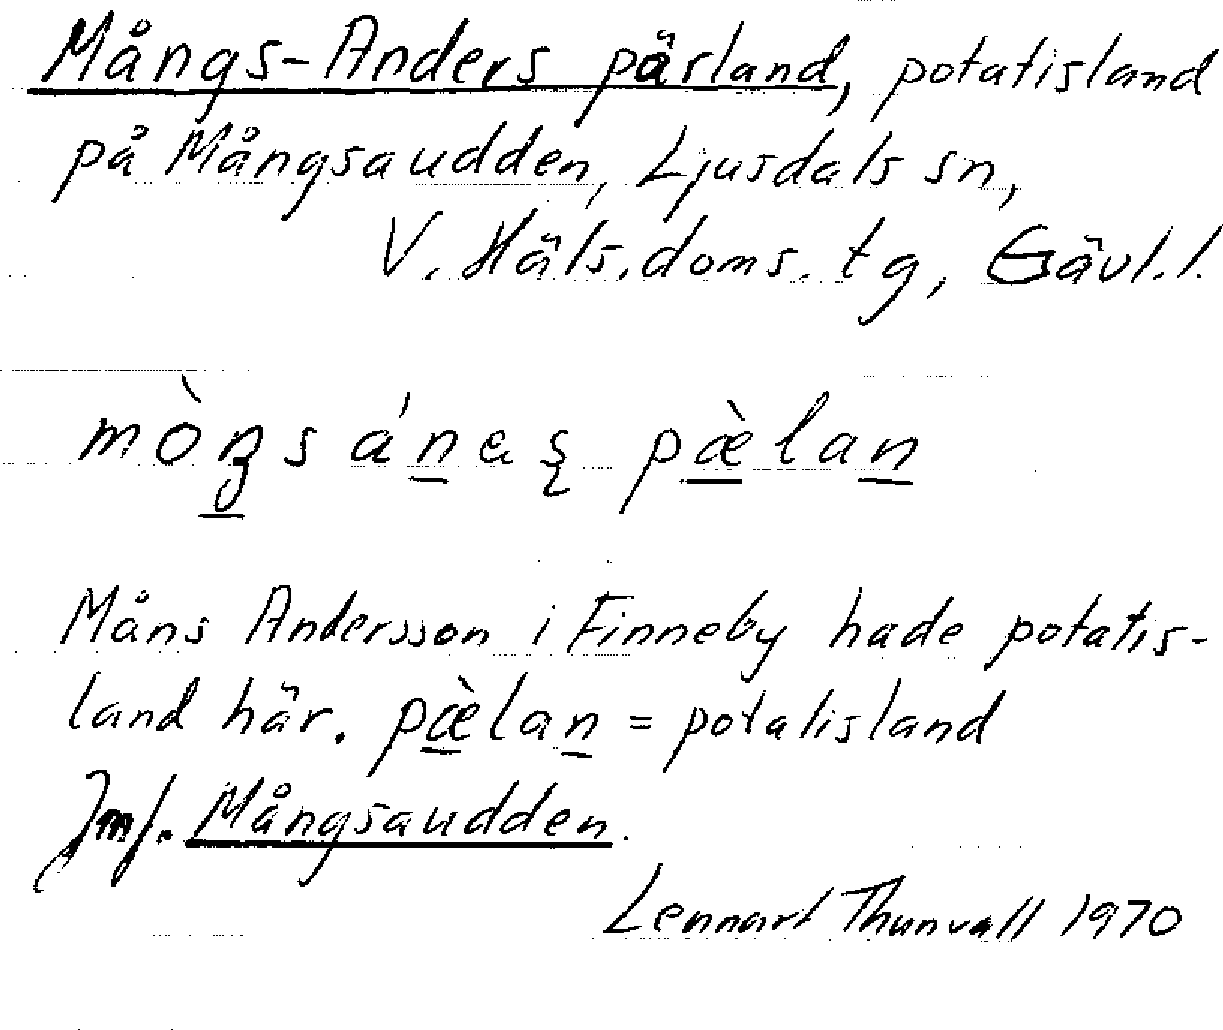 Mångs-Anders pärland, potatisland
på Mångsaudden, Ljusdals sn,
V. Häls. doms. tg, Gävl. l.
mòŋs áṉas̨ pæ̱̀laṉ
Måns Andersson i Finneby hade potatis-
land här. pæ̱̀laṉ = potatisland
Jmf. Mångsaudden.
Lennart Thunvall 1970